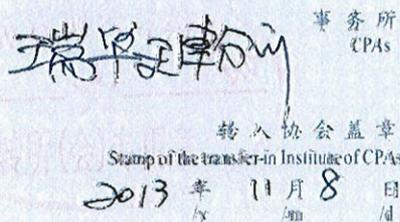 事务所
CPAs
瑞华
转入协会盖章
Stamp of the transfer-in Institute of CPAs
2013 年 11 月 8 日
/y /m /d